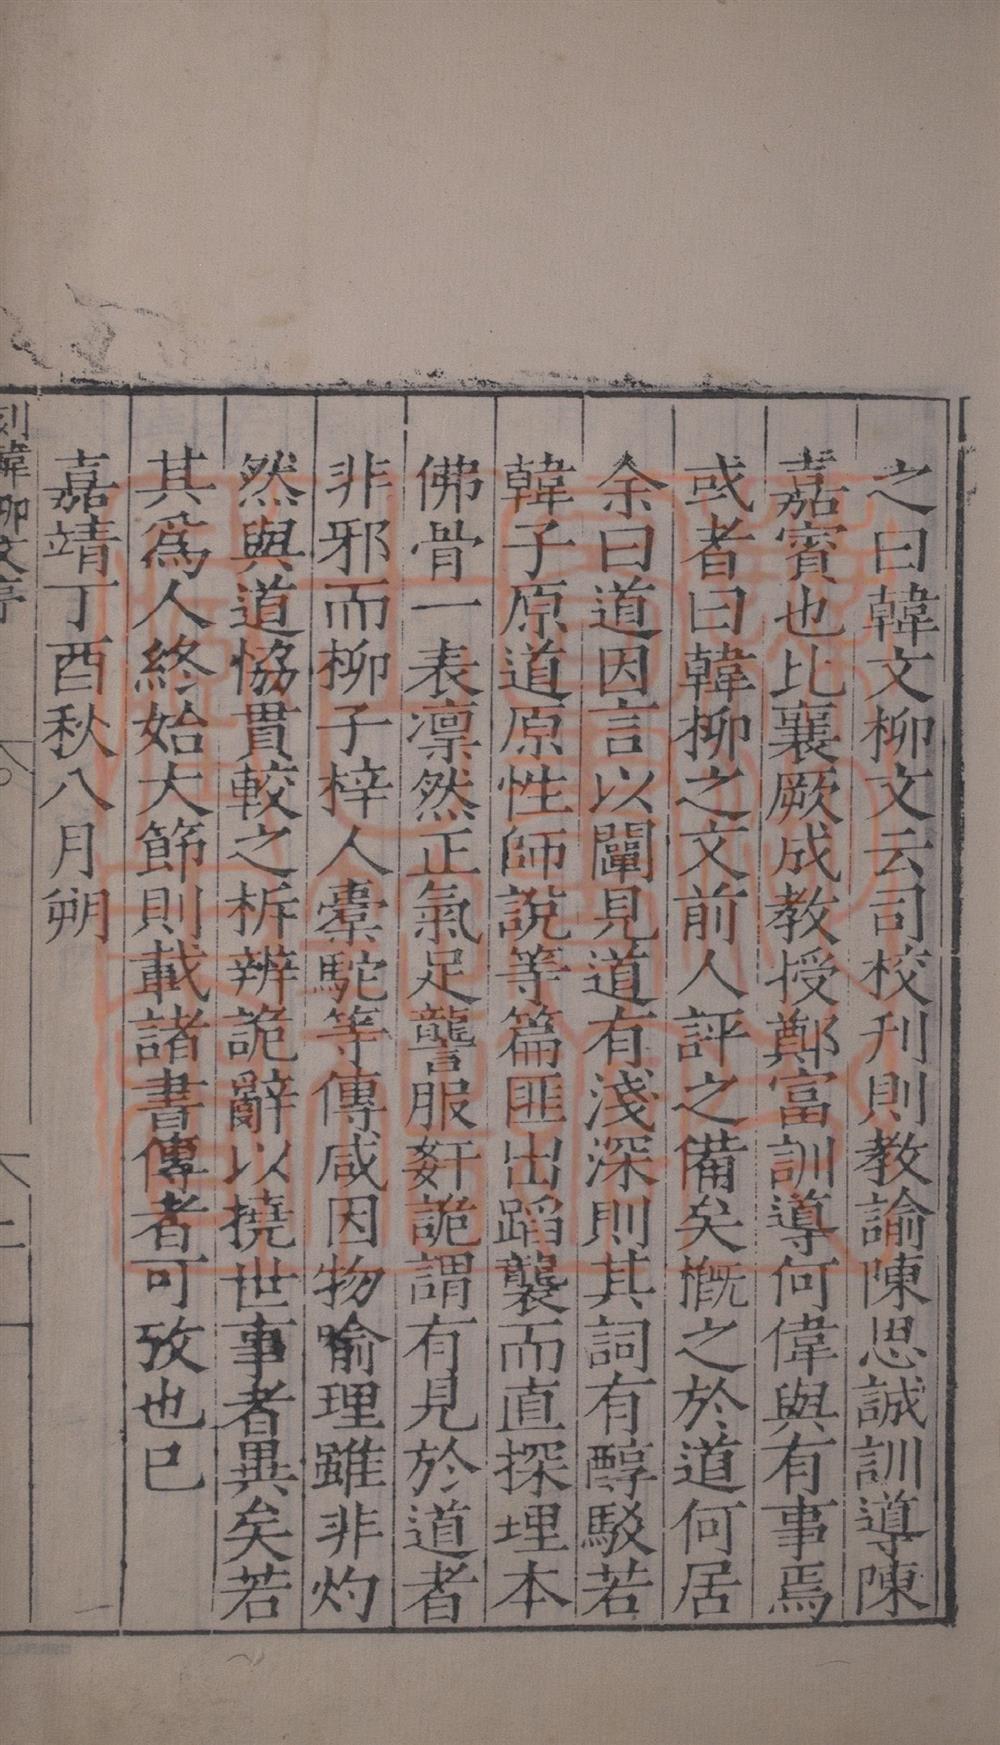 之曰韓文柳文云司校刊則教諭陳思誠訓導陳
嘉賓也比襄厥成教授鄭富訓導何偉與有事焉
或者曰韓柳之文前人評之備矣概之於道何居
余曰道因言以闡見道有淺深則其詞有醇駁若
韓子原道原性師說等篇匪出蹈襲而直探理本
佛骨一表凛然正氣足讋服奸詭謂有見於道者
非邪而柳子梓人橐駝等傳咸因物喻理雖非灼
然與道恊貫較之析辨詭辭以撓世事者異矣若
其為人終始大節則載諸書傳者可攷也已
嘉靖丁酉秋八月朔
刻韓柳文序